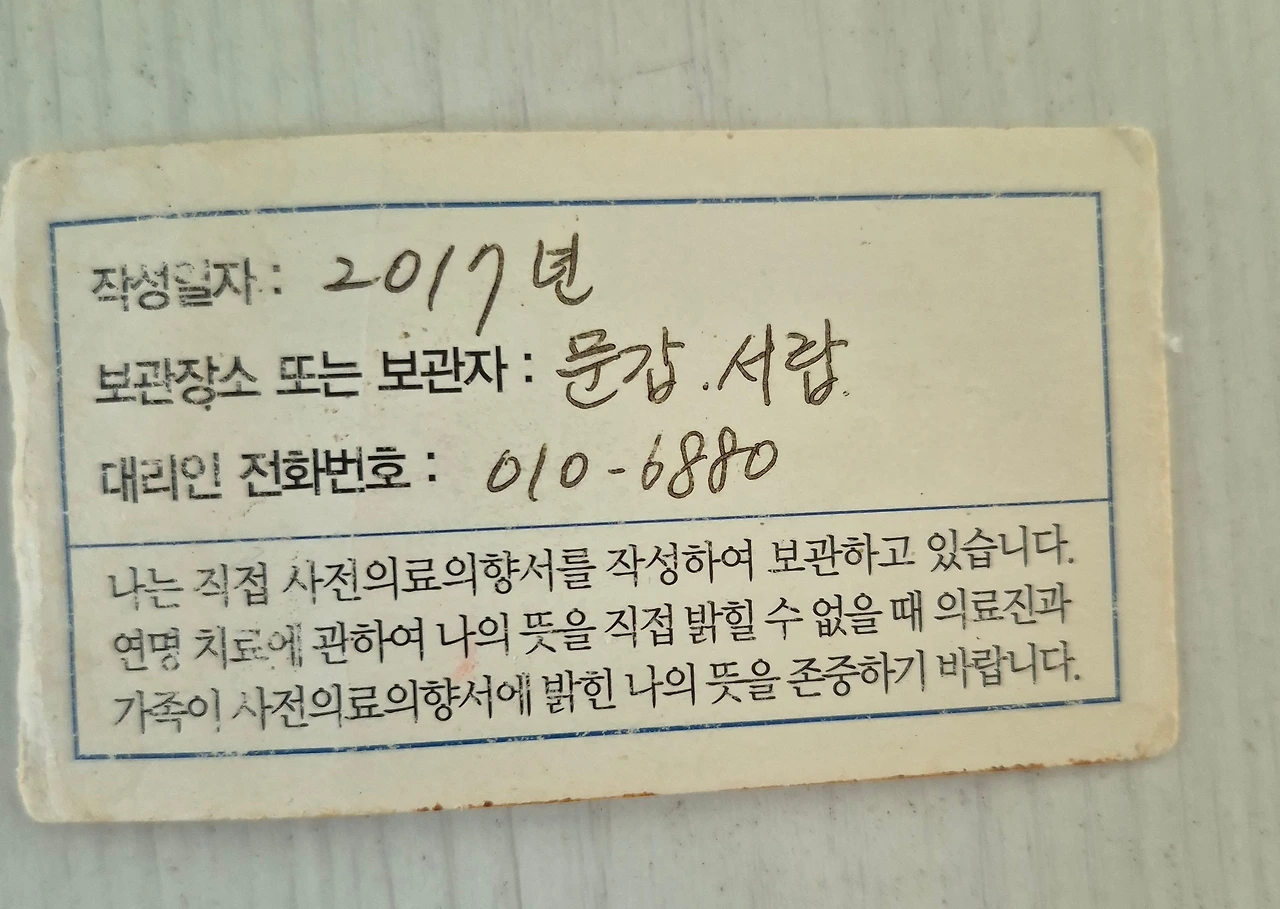 작성일자 : 2017년
보관장소 또는 보관자 : 문갑.서랍.
대리인 전화번호 : 010-6880
나는 직접 사전의료의향서를 작성하여 보관하고 있습니다.
연명 치료에 관하여 나의 뜻을 직접 밝힐 수 없을 때 의료진과
가족이 사전의료의향서에 밝힌 나의 뜻을 존중하기 바랍니다.